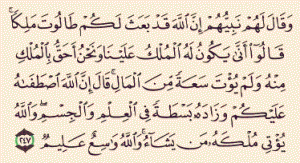 وَقَالَ لَهُمْ نَبِيُّهُمْ إِنَّ ٱللَّهَ قَدْ بَعَثَ لَكُمْ طَالُوتَ مَلِكًا ۚ
قَالُوٓا۟ أَنَّىٰ يَكُونُ لَهُ ٱلْمُلْكُ عَلَيْنَا وَنَحْنُ أَحَقُّ بِٱلْمُلْكِ
مِنْهُ وَلَمْ يُؤْتَ سَعَةً مِّنَ ٱلْمَالِ ۚ قَالَ إِنَّ ٱللَّهَ ٱصْطَفَىٰهُ
عَلَيْكُمْ وَزَادَهُۥ بَسْطَةً فِى ٱلْعِلْمِ وَٱلْجِسْمِ ۖ وَٱللَّهُ
يُؤْتِى مُلْكَهُۥ مَن يَشَآءُ ۚ وَٱللَّهُ وَٰسِعٌ عَلِيمٌ ٢٤٧